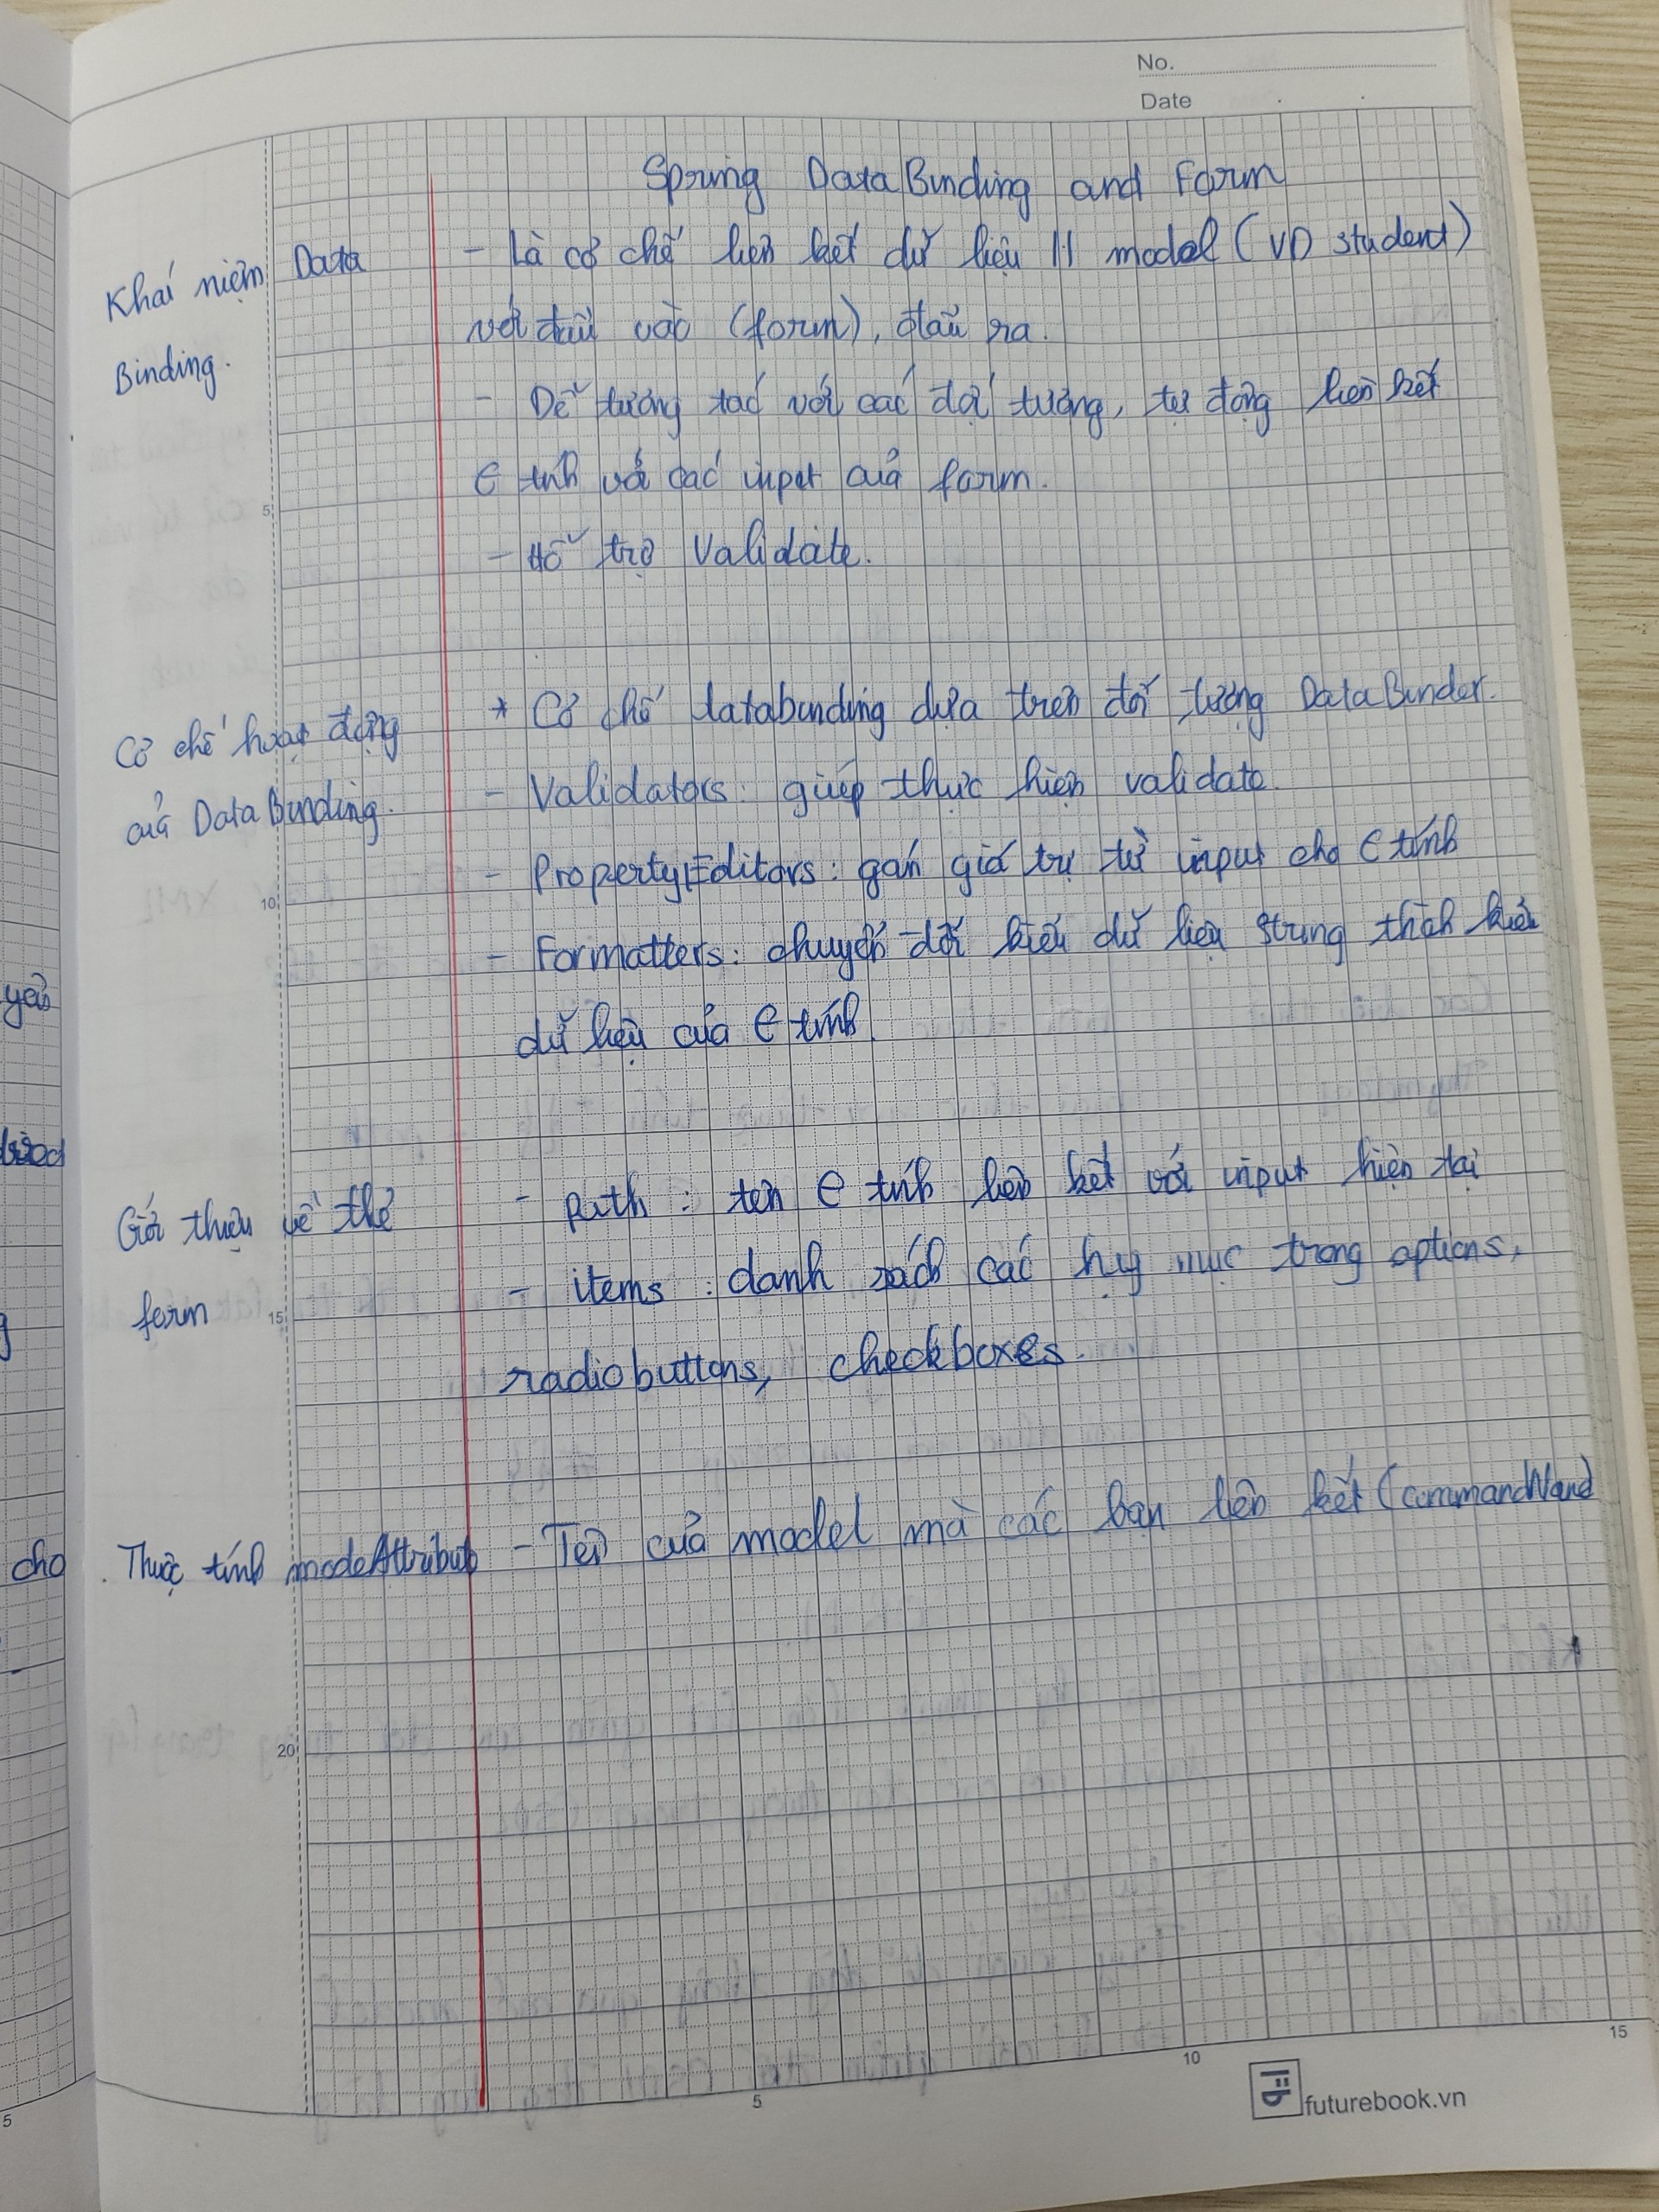 No.
Date
Spring Data Binding and Form
Khái niệm Data
Binding.
- Là cơ chế liên kết dữ liệu 1 model (VD student)
với đầu vào (form), đầu ra.
- Dễ tương tác với các đối tượng, tự động liên kết
€ tính với các input của form.
- Hỗ trợ Validate.
Cơ chế hoạt động
của Data Binding.
* Cơ chế databinding dựa trên đối tượng DataBinder.
- Validators: giúp thực hiện validate.
- PropertyEditors: gán giá trị từ input cho € tính
- Formatters: chuyển đổi kiểu dữ liệu String thành kiểu
dữ liệu của € tính
Giới thiệu về thẻ
form
- path: tên € tính liên kết với input hiện tại
- items: danh sách các hạng mục trong options,
radiobuttons, checkboxes.
Thuộc tính modeAttribute
- Tên của model mà các bạn liên kết (commandName
yếu
được
cho
5
10
15
20
5
10
15
5
futurebook.vn